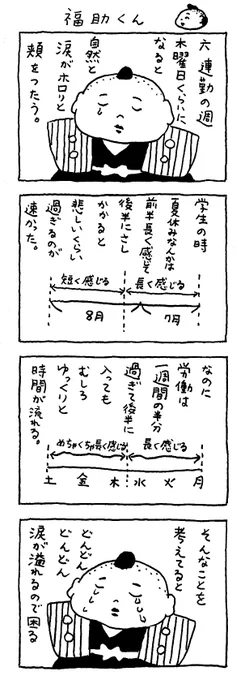 福助くん
六連勤の週
木曜日くらいに
なると
自然と
涙がホロリと
頬をつたう。
学生の時
夏休みなんかは
前半長く感じて
後半にさし
かかると
悲しいくらい
過ぎるのが
速かった。
長く感じる
短く感じる
7月
8月
なのに
労働は
一週間の半分
過ぎて後半に
入っても
むしろ
ゆっくりと
時間が流れる。
長く感じる
めちゃくちゃ長く感じる
月
火
水
木
金
土
そんなことを
考えてると
どんどん
どんどん
涙が溢れるので困る